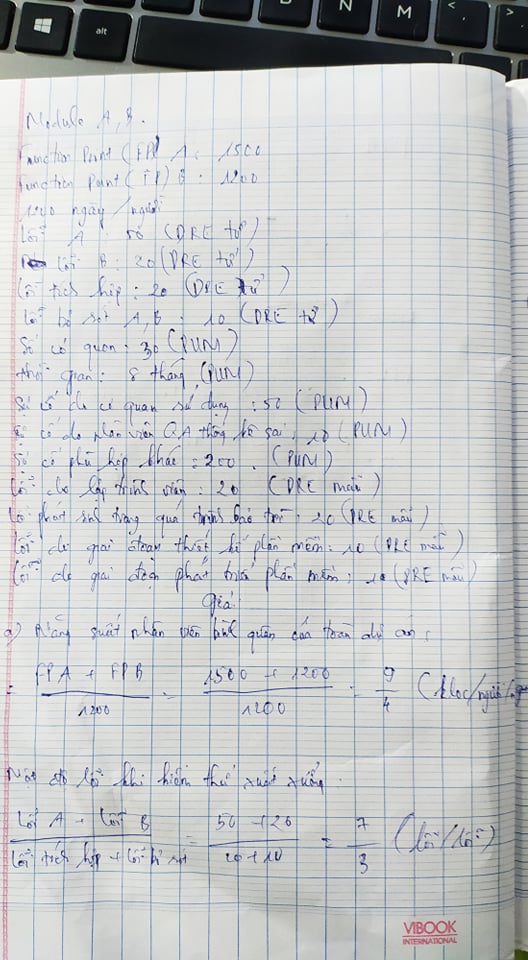 alt
B
N
M
Module A, B.
Function Point (FP) A : 1500
Function Point (FP) B : 1200
1200 ngày / người
Lỗi A : 50 (DRE tử)
Lỗi B : 20 (DRE tử)
Lỗi tích hợp : 20 (DRE tử)
Lỗi bỏ sót A, B : 10 (DRE tử)
Số cơ quan : 30 (PUM)
thời gian : 8 tháng (PUM)
Sự cố do cơ quan sử dụng : 50 (PUM)
Sự cố do nhân viên QA thống kê sai : 10 (PUM)
Số cố phù hợp khác = 200 . (PUM)
Lỗi do lập trình viên : 20 (DRE mẫu)
Lỗi phát sinh trong quá trình bảo trì : 20 (DRE mẫu)
Lỗi do giai đoạn thiết kế phần mềm : 10 (DRE mẫu)
Lỗi do giai đoạn phát triển phần mềm : 10 (DRE mẫu)
Giải
a) Năng suất nhân viên bình quân của toàn dự án :
= FPA + FPB / 1200 = 1500 + 1200 / 1200 = 9 / 4 (kloc/người/
Mật độ lỗi khi kiểm thử xuất xưởng :
Lỗi A + Lỗi B / Lỗi tích hợp + Lỗi bỏ sót = 50 + 20 / 20 + 10 = 7 / 3 (lỗi/lỗi)
VIBOOK
INTERNATIONAL